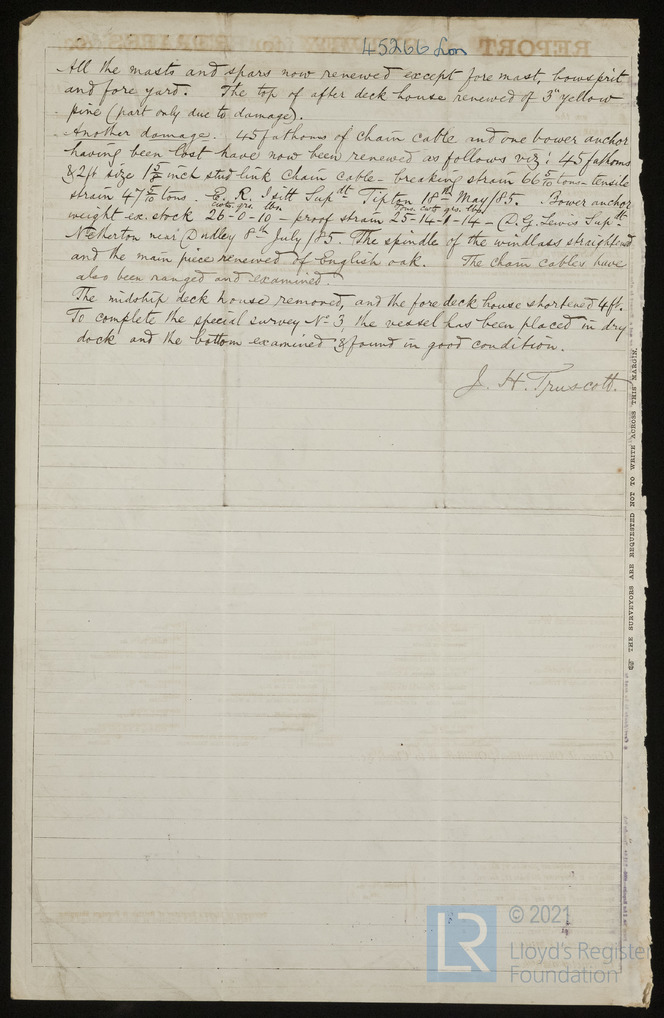 45266 Lon
All the masts and spars now renewed except fore mast, bowsprit
and fore yard. The top of after deck house renewed of 3" yellow
pine (part only due to damage).
Another damage. 45 fathoms of chain cable and one bower anchor
having been lost have now been renewed as follows viz: 45 fathoms
& 2 ft size inch stud link chain cable - breaking strain 66 5/10 tons - tensile
strain 47 5/10 tons. E. R. Isitt Supdtt Tipton 18th May/85. Bower anchor
cwts. qrs. lbs tons. cwts qrs. lbs
weight ex. stock 26-0-10 - proof strain 25-14-1-14 - (D. G. Lewis Suptt
Netherton near Dudley 8th July/85. The spindle of the windlass straightened
and the main piece renewed of English oak. The chain cables have
also been ranged and examined.
The midship deck house removed, and the fore deck house shortened 4 ft.
To complete the special survey No 3, the vessel has been placed in dry
dock and the bottom examined & found in good condition.
J. H. Truscott.
THE SURVEYORS ARE REQUESTED NOT TO WRITE ACROSS THIS MARGIN.
LR
© 2021
Lloyd's Register
Foundation